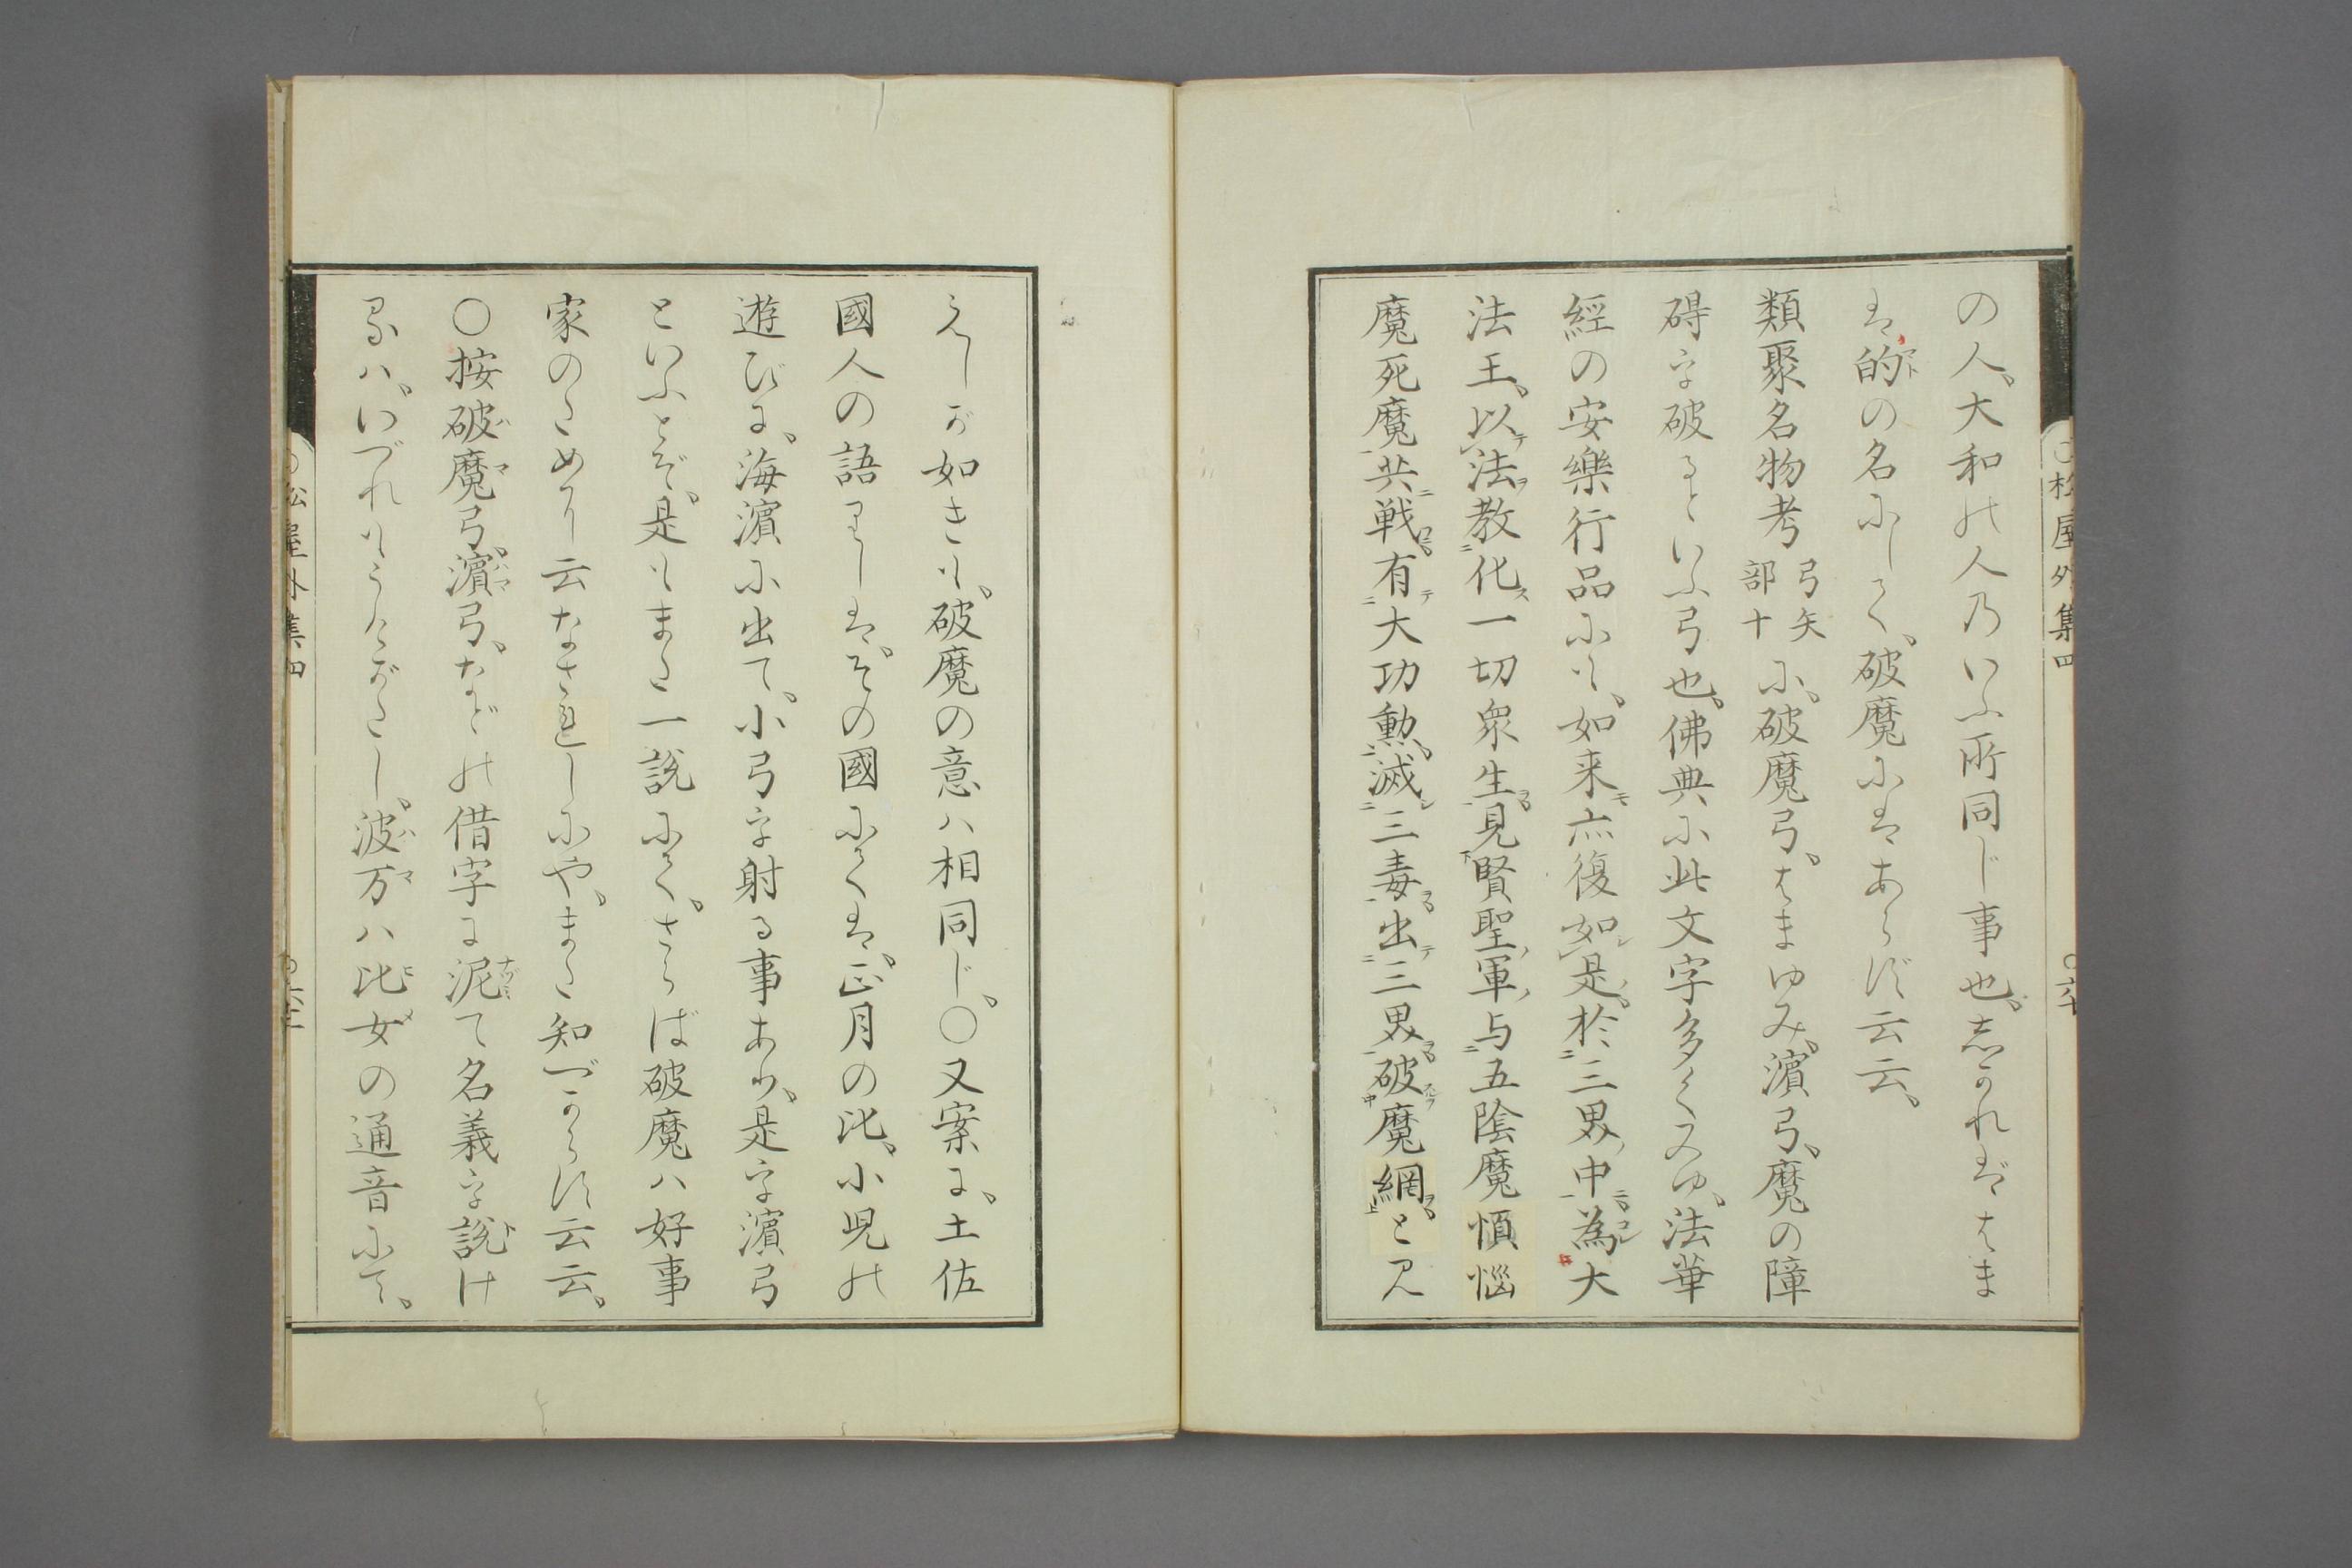 の人、大和の人乃いふ所同じ事也、志かればはま
は的の名にして、破魔にはあらず云云、
類聚名物考弓矢部十に、破魔弓、はまゆみ、濱弓、魔の障
碍を破るといふ弓也、佛典に此文字多くみゆ、法華
經の安樂行品にも、如来亦復如是、於三界中為大
法王、以法教化一切衆生、見賢聖軍、与五陰魔煩惱
魔死魔共戦、有大功勲、滅三毒、出三界、破魔網、とみ
えしが如きも、破魔の意ハ相同じ、〇又案に、土佐
國人の語りしは、その國にては、正月の比、小児の
遊びに、海濱に出て、小弓を射る事あり、是を濱弓
といふとぞ、是もまた一説にて、さらば破魔ハ好事
家のためりに云なされしにや、また知べからず云云、
〇按破魔弓、濱弓、などの借字に泥て名義を説け
るハ、いづれもうけがたし、波万ハ比女の通音にて、
松屋外集四
松屋外集四